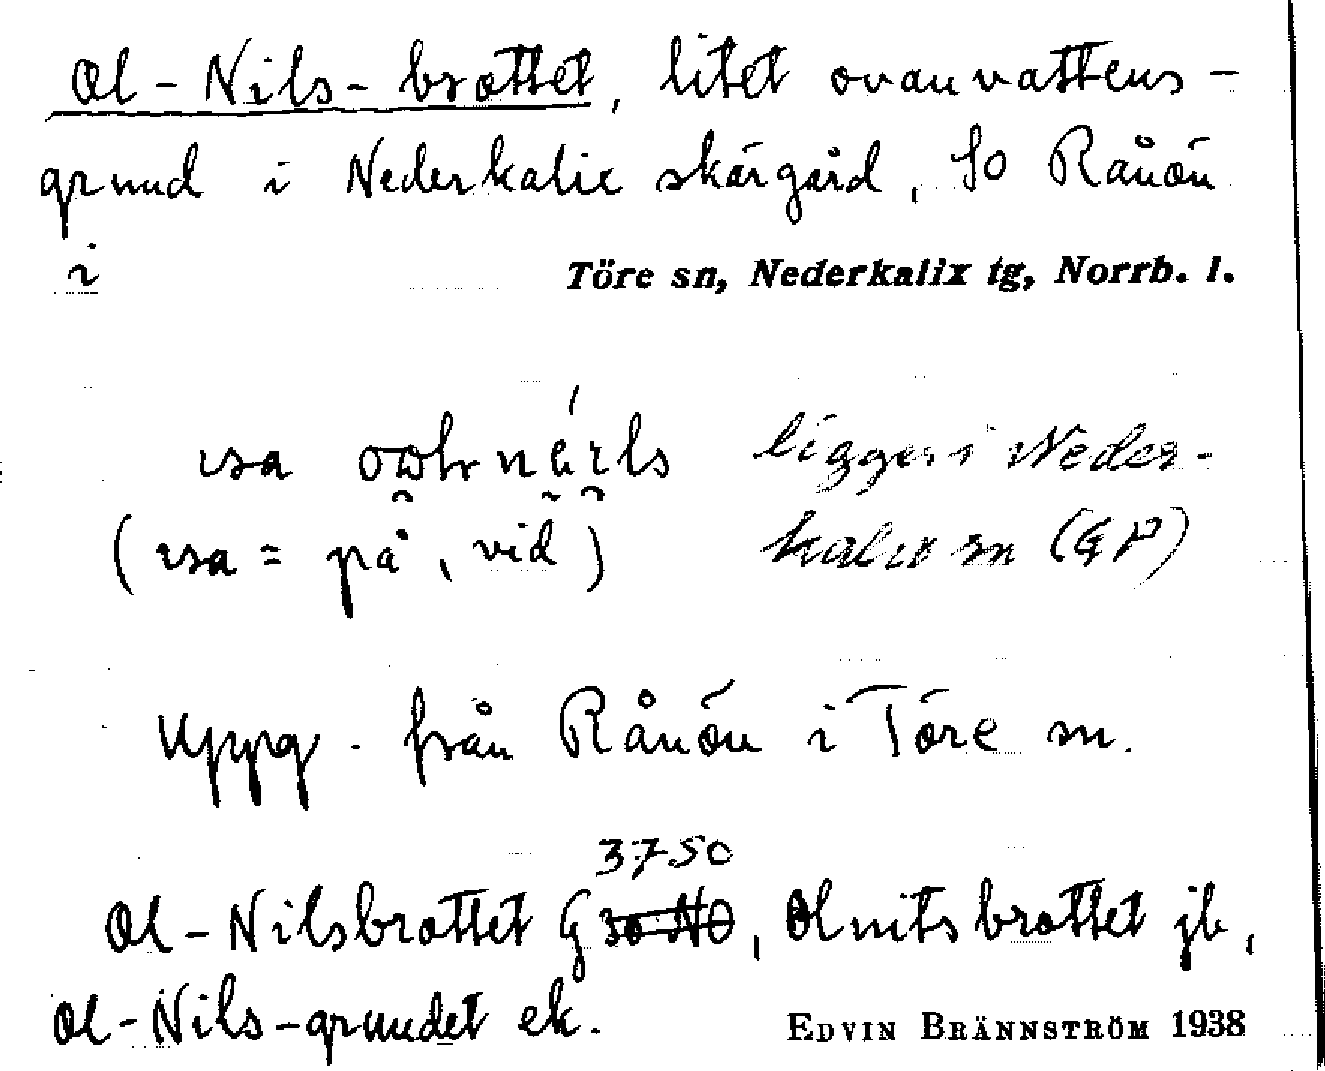 Ol-Nils-brottet, litet ovanvattens-
grund i Nederkalix skärgård, SO Rånön
i Töre sn, Nederkalix tg, Norrb. l.
ligger i Neder-
(isa = på, vid) kalix sn (GP)
Uppg. från Rånön i Töre sn.
3750
Ol-Nilsbrottet G 30 NO, Olnilsbrottet jb,
Ol-Nils-grundet ek. EDVIN BRÄNNSTRÖM 1938